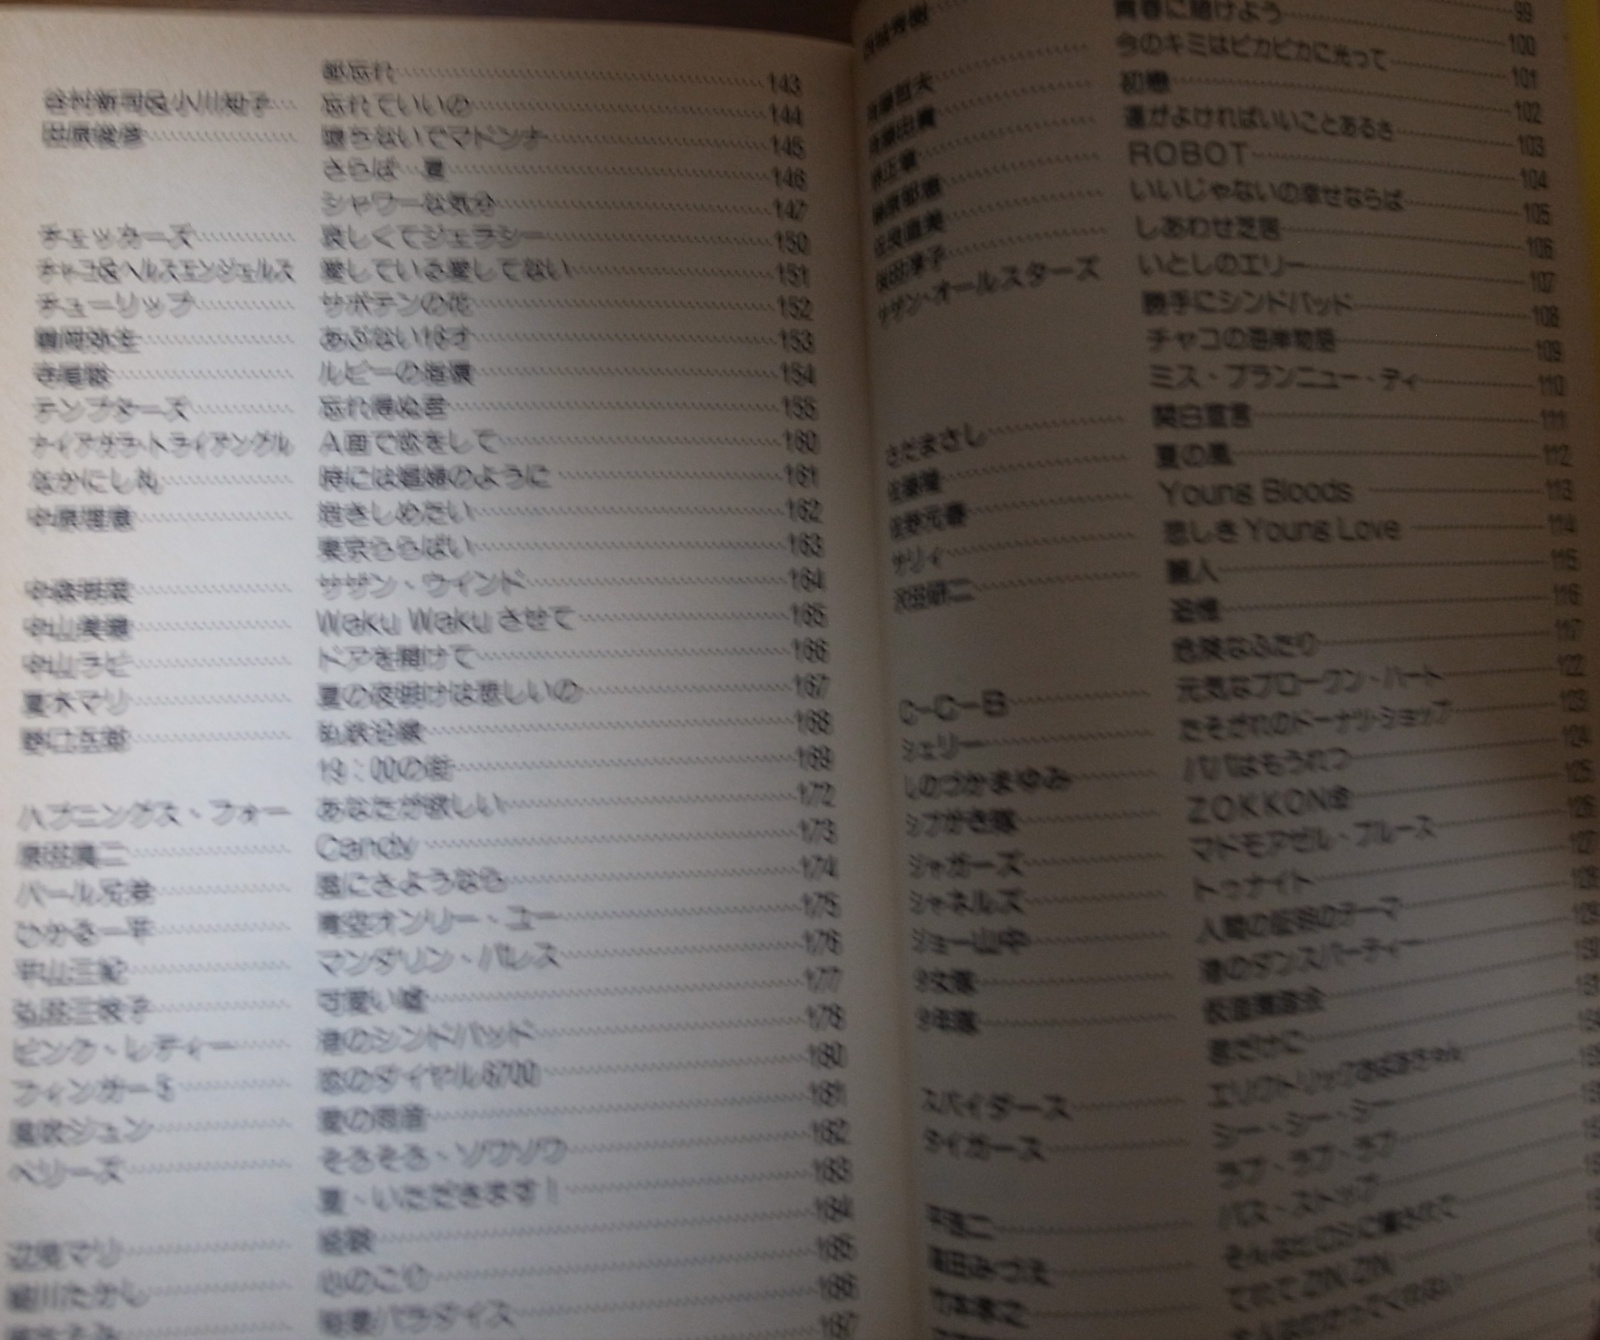 143
谷村新司&小川知子 忘れていいの 144
田原俊彦 堕ちないでマドンナ 145
さらば…夏 146
シャワーな気分 147
チェッカーズ 哀しくてジェラシー 150
チャコ&ヘルスエンジェルス 愛している愛してない 151
チューリップ サボテンの花 152
あぶない16才 153
寺尾聰 ルビーの指環 154
テンプターズ 忘れ得ぬ君 155
ナイアガラ・トライアングル A面で恋をして 160
なかにし礼 時には娼婦のように 161
中原理恵 抱きしめたい 162
東京ららばい 163
中森明菜 サザン・ウインド 164
中山美穂 Waku Waku させて 165
中山ラビ ドアを開けて 166
夏木マリ 夏の夜明けは悲しいの 167
野口五郎 私鉄沿線 168
19:00の街 169
ハプニングス・フォー あなたが欲しい 172
原田真二 Candy 173
パール兄弟 風にさようなら 174
ひかる一平 青空オンリー・ユー 175
平山三紀 マンダリン・パレス 176
弘田三枝子 可愛い嘘 177
ピンク・レディー 渚のシンドバッド 178
フィンガー5 恋のダイヤル6700 180
風吹ジュン 愛の肖像 181
ベリーズ そろそろ・ソワソワ 182
夏・いただきます! 183
辺見マリ 経験 184
細川たかし 心のこり 185
186
187
西城秀樹 青春に賭けよう 99
今のキミはピカピカに光って 100
初恋 101
運がよければいいことあるさ 102
ROBOT 103
佐良直美 いいじゃないの幸せならば 104
桜田淳子 しあわせ芝居 105
サザン・オールスターズ いとしのエリー 106
勝手にシンドバッド 107
チャコの海岸物語 108
ミス・ブランニュー・デイ 109
さだまさし 関白宣言 110
佐藤隆 夏の風 111
佐野元春 Young Bloods 112
サリィ 悲しき Young Love 113
沢田研二 麗人 114
追憶 115
危険なふたり 116
C-C-B 元気なブロークン・ハート 117
シェリー たそがれのドーナツ・ショップ 122
しのづかまゆみ パパはもうれつ 123
シブがき隊 ZOKKON命 124
ジャガーズ マドモアゼル・ブルース 125
シャネルズ トゥナイト 126
ジョー山中 人間の証明のテーマ 127
少女隊 渚のダンスパーティー
少年隊 仮面舞踏会
君だけに
スパイダース エレクトリックおばあちゃん
タイガース シー・シー・シー
ラブ・ラブ・ラブ
平浩二 バス・ストップ
高田みづえ そんなヒロシに騙されて
竹本孝之 てれて ZIN ZIN